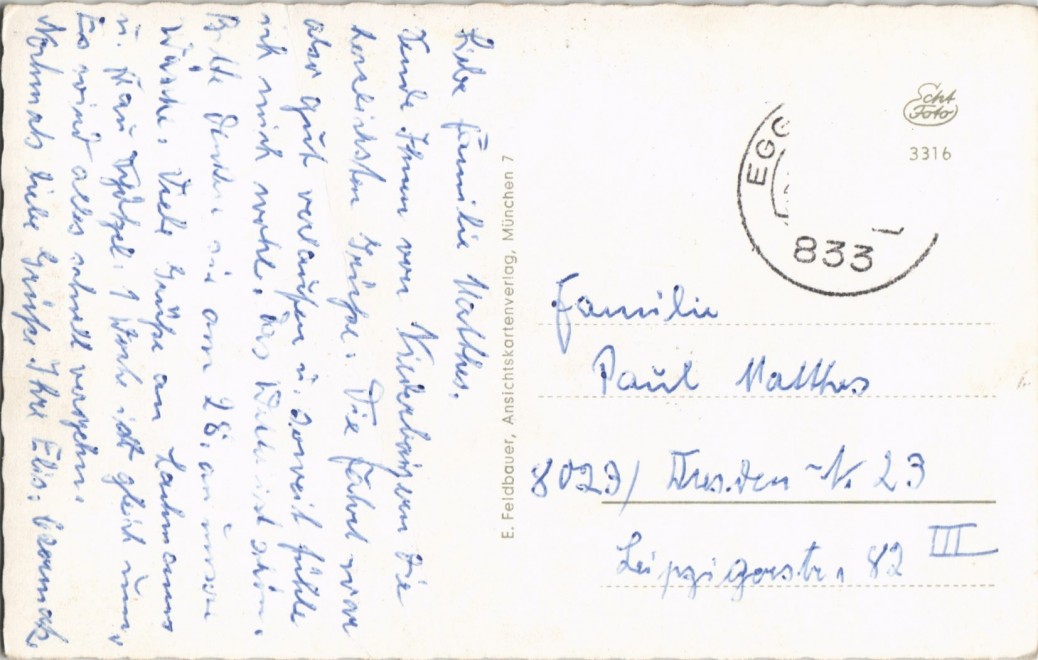 Liebe Familie Matthes.
Sende Ihnen von Niederbayern die
herzlichsten Grüße. Die Fahrt wäre
aber gut verlaufen u. soweit fühle
ich mich wohl. Das Wetter ist schön.
Bitte denken sie am 28. an unsere
Wäsche. Viele Grüße an Lachmanns
u. Frau 1 Woche ist gleich rum,
Es wird alles schnell vergehn.
Nochmals liebe Grüße Ihre Elis.
E. Feldbauer, Ansichtskartenverlag, München 7
Echt
Foto
3316
EGG
833
Familie
Paul Matthes
8023/ Dresden -N. 23
Leipzigerstr. 82 III